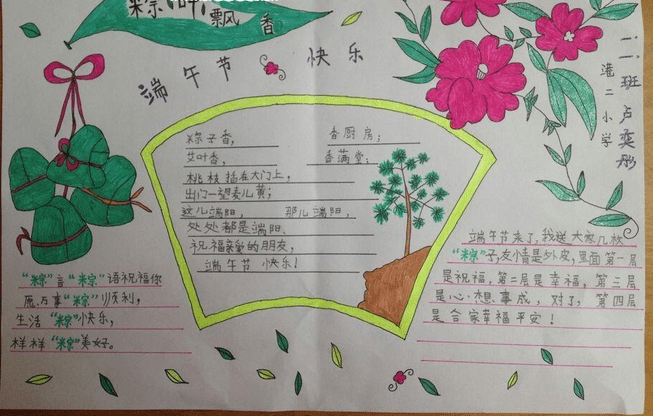 粽叶飘香
端午节快乐
二、二班 卢奕彤
港二小学
粽子香， 香厨房；
艾叶香， 香满堂；
桃枝插在大门上，
出门一望麦儿黄；
这儿端阳， 那儿端阳，
处处都是端阳、
祝福亲爱的朋友，
端午节快乐！
“粽”言“粽”语祝福你
愿万事“粽”顺利，
生活“粽”快乐，
样样“粽”美好。
端午节来了，我送大家几枚
“粽”子，友情是外皮，里面第一层
是祝福，第二层是幸福，第三层
是心·想事成，对了，第四层
是合家幸福平安！